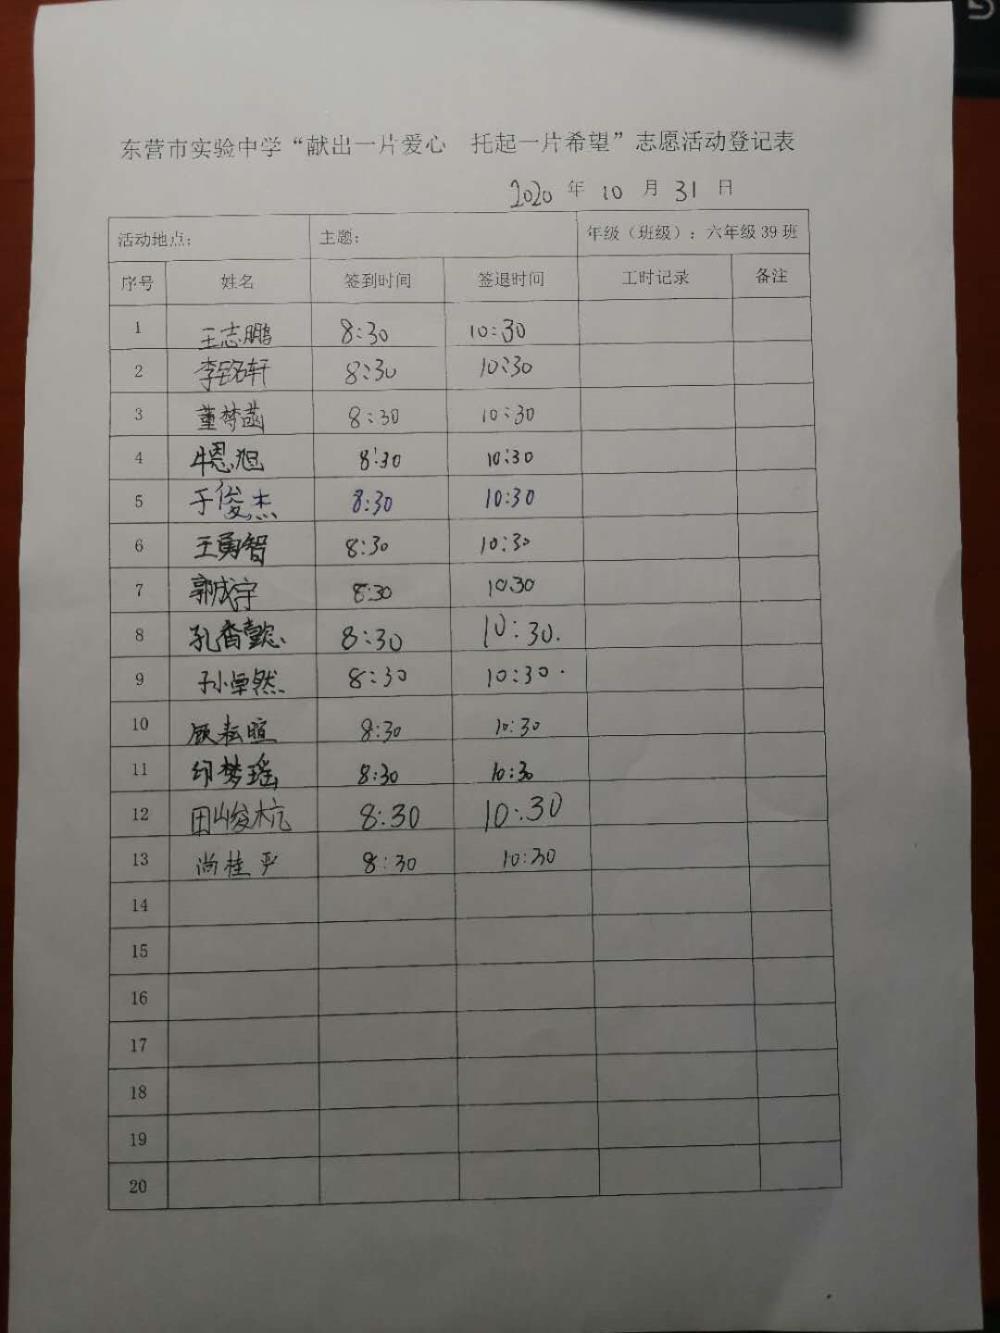 东营市实验中学“献出一片爱心 托起一片希望”志愿活动登记表
2020 年 10 月 31 日
活动地点： 主题： 年级（班级）：六年级 39 班
序号 姓名 签到时间 签退时间 工时记录 备注
1 王志鹏 8:30 10:30
2 李铭轩 8:30 10:30
3 董梦菡 8:30 10:30
4 牛恩旭 8:30 10:30
5 于俊杰 8:30 10:30
6 王勇智 8:30 10:30
7 郭成宇 8:30 10:30
8 孔香懿 8:30 10:30.
9 8:30 10:30.
10 8:30 10:30
11 8:30 10:30
12 田峻杭 8:30 10:30
13 尚桂严 8:30 10:30
14
15
16
17
18
19
20